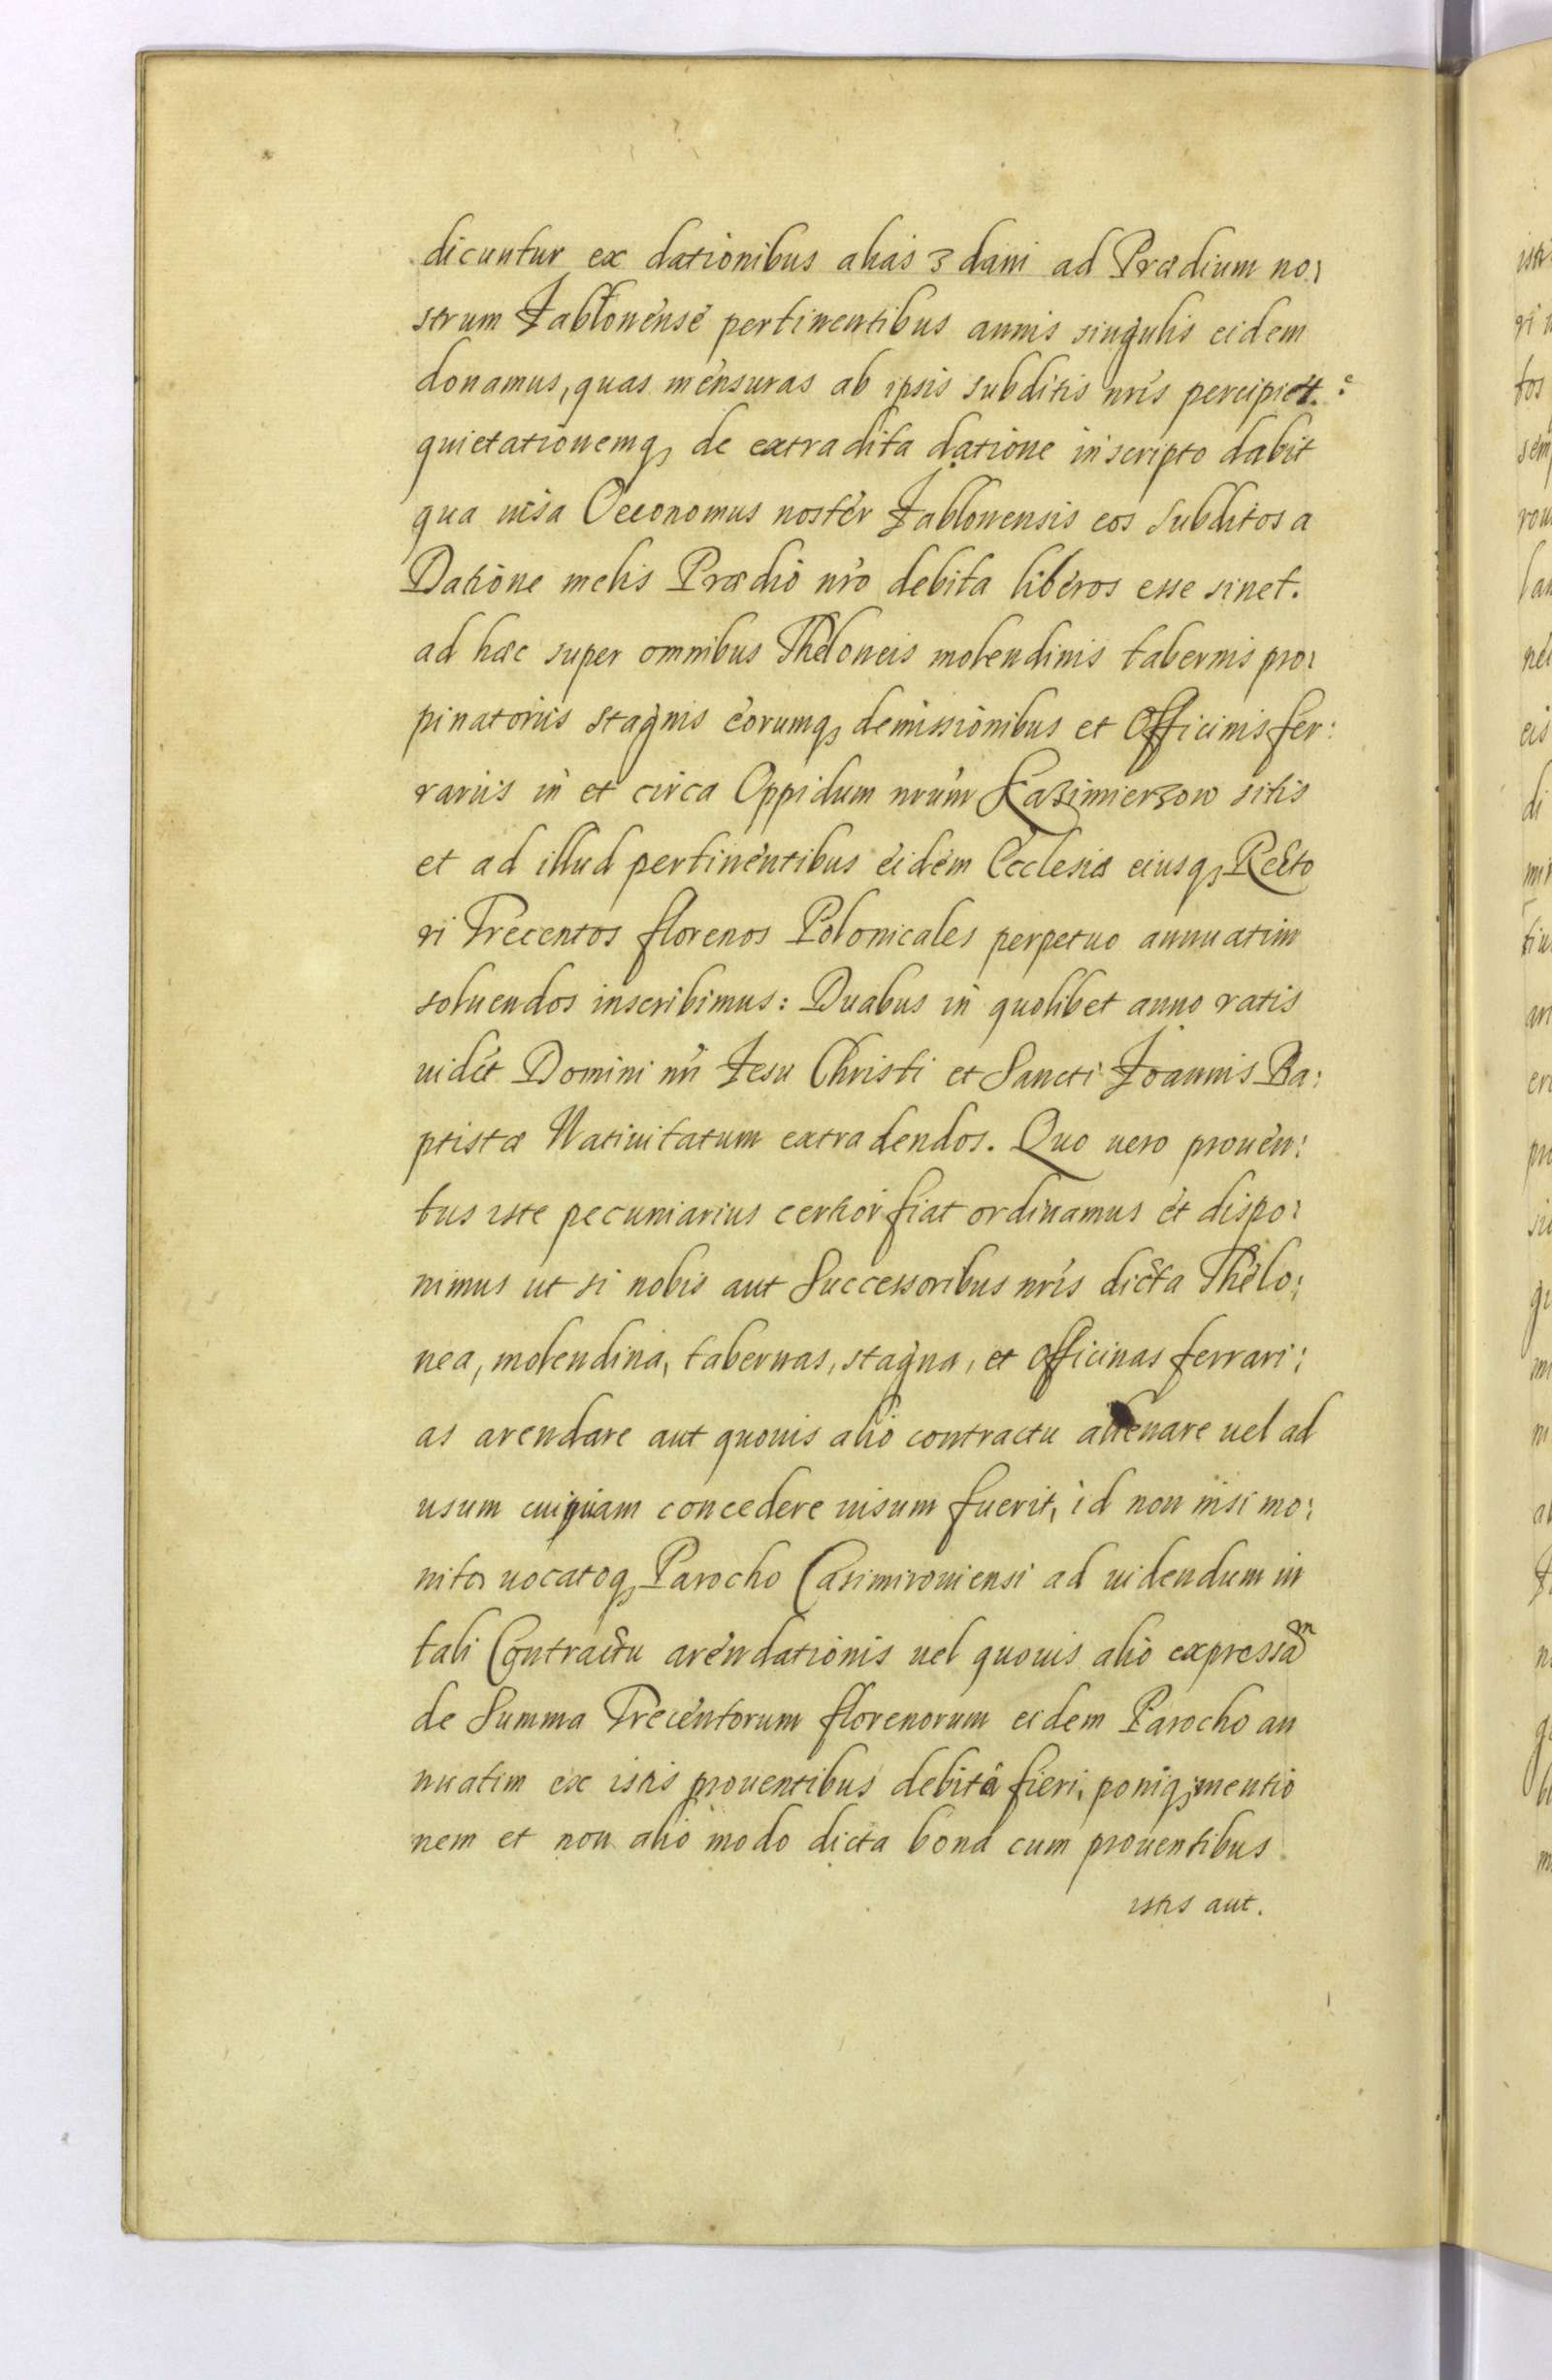 dicuntur ex dationibus alias z dani ad Prædium no:
strum Jabłonense pertinentibus annis singulis eidem
donamus, quas mensuras ab ipsis subditis nris percipiet:
quietationemq, de extradita datione in scripto dabit
qua uisa Oeconomus noster Jablonensis eos subditos a
Datione melis Prædio nro debita liberos esse sinet.
ad hæc super omnibus Theloneis molendinis tabernis pro:
pinatoriis stagnis eorumq, demissionibus et Officinis fer:
rariis in et circa Oppidum nrum Kazimierzow sitis
et ad illud pertinentibus eidem Ecclesiæ eiusq, Recto
ri Trecentos florenos Polonicales perpetuo annuatim
soluendos inscribimus: Duabus in quolibet anno ratis
uidet Domini nri Jesu Christi et Sancti Joannis Ba:
ptistæ Natiuitatum extradendos. Quo uero prouen:
tus iste pecuniarius certior fiat ordinamus et dispo:
nimus ut si nobis aut Successoribus nris dicta Thelo:
nea, molendina, tabernas, stagna, et officinas ferrari:
as arendare aut quouis alio contractu alienare uel ad
usum cuipiam concedere uisum fuerit, id non nisi mo:
nito uocatoq, Parocho Casimirouiensi ad uidendum in
tali Contractu arendationis uel quouis alio expressam
de Summa Trecentorum florenorum eidem Parocho an
nuatim ex istis prouentibus debita fieri, poniq, mentio
nem et non alio modo dicta bona cum prouentibus
istis aut.